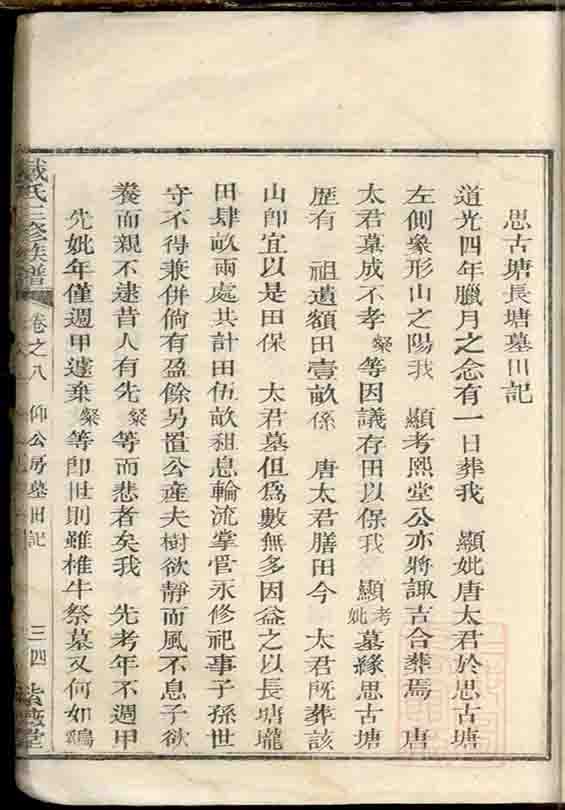 思古塘長塘墓田記
道光四年臘月之念有一日葬我 顯妣唐太君於思古塘
左側象形山之陽我 顯考熙堂公亦將諏吉合葬焉 唐
太君墓成不孝粲等因議存田以保我 顯考妣墓緣思古塘
歷有 祖遺額田壹畝係 唐太君膳田今 太君既葬該
山卽宜以是田保 太君墓但爲數無多因益之以長塘壠
田肆畝兩處共計田伍畝租息輪流掌管永修祀事子孫世
守不得兼併倘有盈餘另置公產夫樹欲靜而風不息子欲
養而親不逮昔人有先粲等而悲者矣我 先考年不週甲
先妣年僅週甲遽棄粲等卽世則雖椎牛祭墓又何如鷄
戴氏三修族譜 卷之八 仰公房墓田記 三四